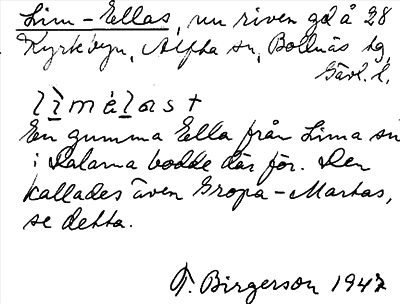 Lim-Ellas, nu riven gd å 28
Kyrkbyn, Alfta sn, Bollnäs tg,
Gävl. l.
En gumma Ella från Lima sn
i Dalarna bodde där för. Den
kallades även Gropa-Martas,
se detta.
T. Birgerson 1947